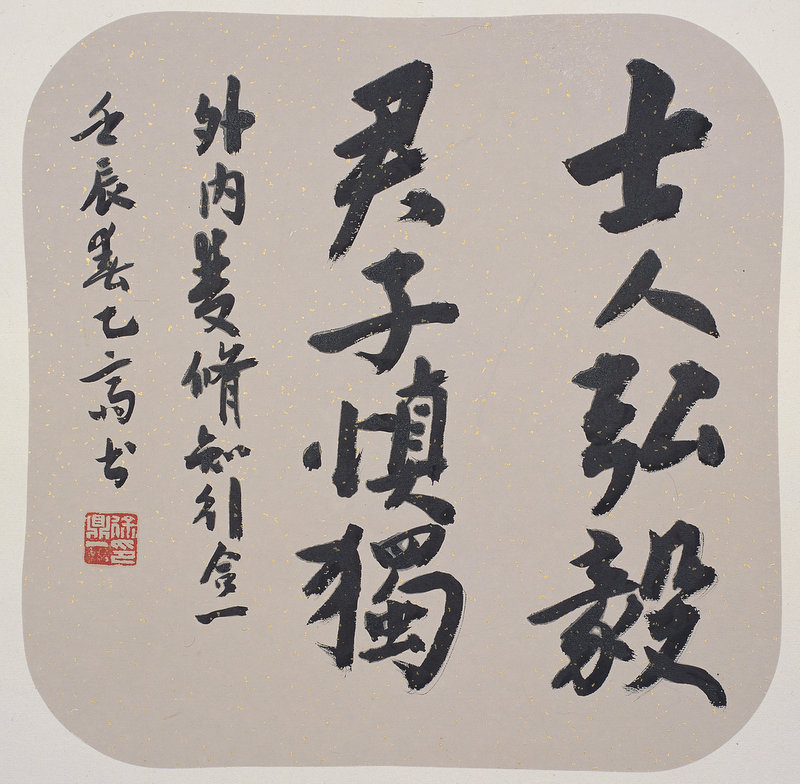 士人弘毅
君子慎獨
外内雙修知行合一
壬辰春高书
徐印鼎一